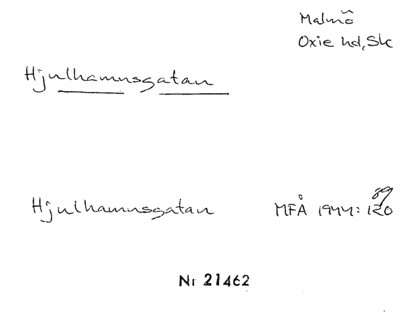 Malmö
Oxie hd, Sk
Hjulhamnsgatan
89
Hjulhamnsgatan MFÅ 1944: 120
Nr 21462